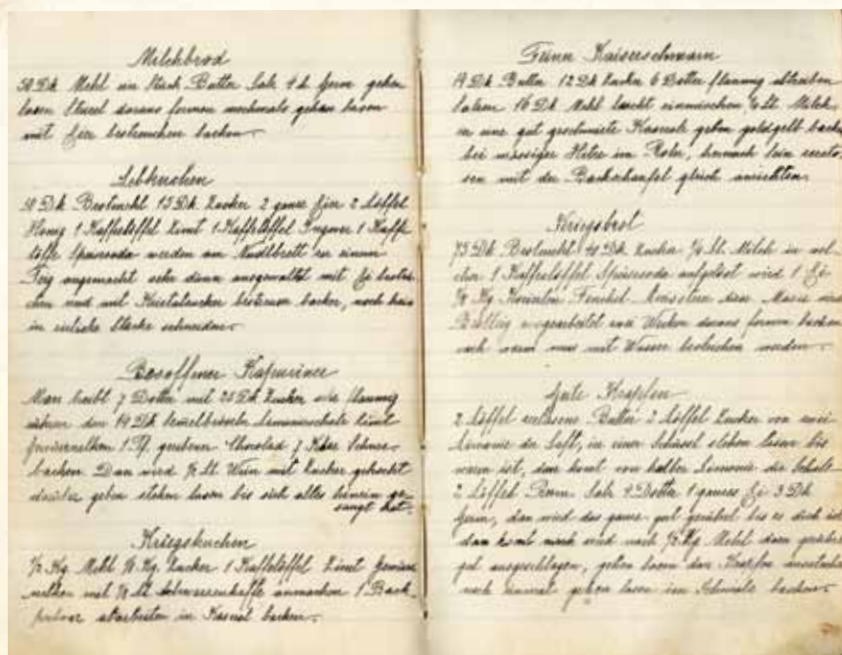 Milchbrod
50 Dk Mehl ein Stück Butter Salz 4 d. Germ gehen
lassen Strizel daraus formen nochmals gehen lassen
mit Eier bestreichen backen
Lebkuchen
50 Dk Brotmehl 15 Dk Zucker 2 ganze Eier 2 Löffel
Honig 1 Kaffeelöffel Zimt 1 Kaffelöffel Ingwer 1 Kaffe
löffe Speisesoda werden am Nudlbrett zu einem
Teig angemacht sehr dünn ausgewalkt mit Ei bestri-
chen und mit Kristalzucker bestreun backen, noch heis
in Stücke schneiden
Besoffner Kapuziner
Man treibt 7 Dotter mit 25 Dk Zucker sehr flaumig
rühren dan 14 Dk Semelbröseln Lemonenschale Zimt
Gewürznelken 1 Tf. geriebene Chocolad 7 Klar Schnee
backen Dan wird ½ Lt. Wein mit Zucker gekocht
darüber geben stehen lassen bis sich alles hinein ge-
saugt hat.
Kriegskuchen
½ Kg. Mehl ¼ Kg. Zucker 1 Kaffelöffel Zimt Gewürz
nelken mit Lt. schwarzenkaffe anmachen 1 Back
pulver abarbeiten in Kaserol backen
Feiner Kaiserschmarn
14 Dk Butter 12 Dk Zucker 6 Dotter flaumig abtreiben
16 Dk Mehl leicht einmischen Lt. Milch
in eine gut geschmierte Kaserole geben goldgelb backen
bei mässiger Hitze im Rohr, hernach fein zersto-
sen mit der Backschaufel gleich anrichten.
Kriegsbrot
75 Dk Brotmehl 40 Dk Zucker Lt. Milch in wel-
cher 1 Kaffeelöffel Speisesoda aufgelöst wird 1 Ei
Kg Korinten Fenchel diese Masse wird
ausgearbeitet zwei Wecken daraus formen backen
noch warm mus mit Wasser bestrichen werden
Gute Krapfen
2 Löffel zerlasene Butter 2 Löffel Zucker von zwei
Limonie der Saft, in einer Schüssel stehen lassen bis
warm ist, dan komt von halber Limonie die Schale
2 Löffel Rum Salz 4 Dotter 1 ganzes Ei 3 Dk
Germ, dan wird das ganze gut gerührt bis es dick ist
dan komt noch ½ Kg Mehl dazu
gut ausgeschlagen, gehen lassen dan Krapfen ausstechen
noch einmal gehen lassen im Schmalz backen